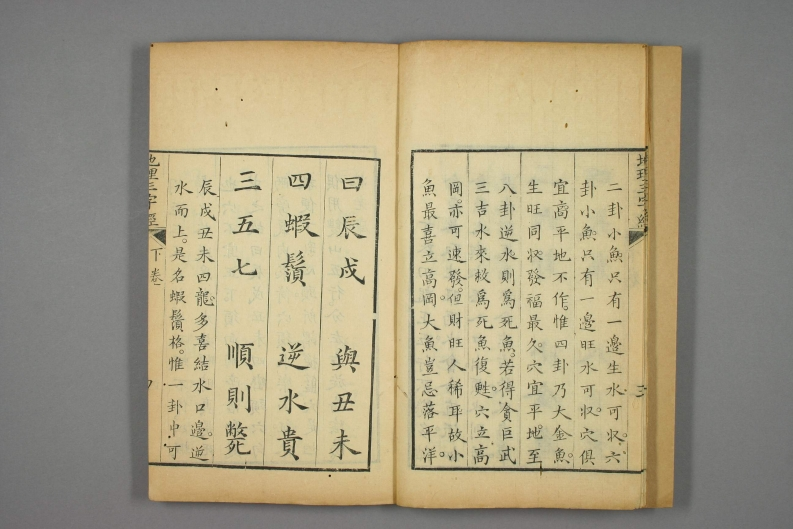 地理三字經
二卦小魚只有一邊生水可收。六
卦小魚只有一邊旺水可收。穴俱
宜高平地不作。惟四卦乃大金魚。
生旺同收發福最久。穴宜平地。至
八卦逆水則為死魚。若得貪巨武
三吉水來救為死魚復甦。穴立高
岡。亦可速發。但財旺人稀耳故小
魚最喜立高岡。大魚豈忌落平洋。
曰辰戍 與丑未
四蝦鬚 逆水貴
三五七 順則斃
辰戍丑未四龍。多喜結水口邊。逆
水而上。是名蝦鬚格。惟一卦中可
地理三字經
下卷